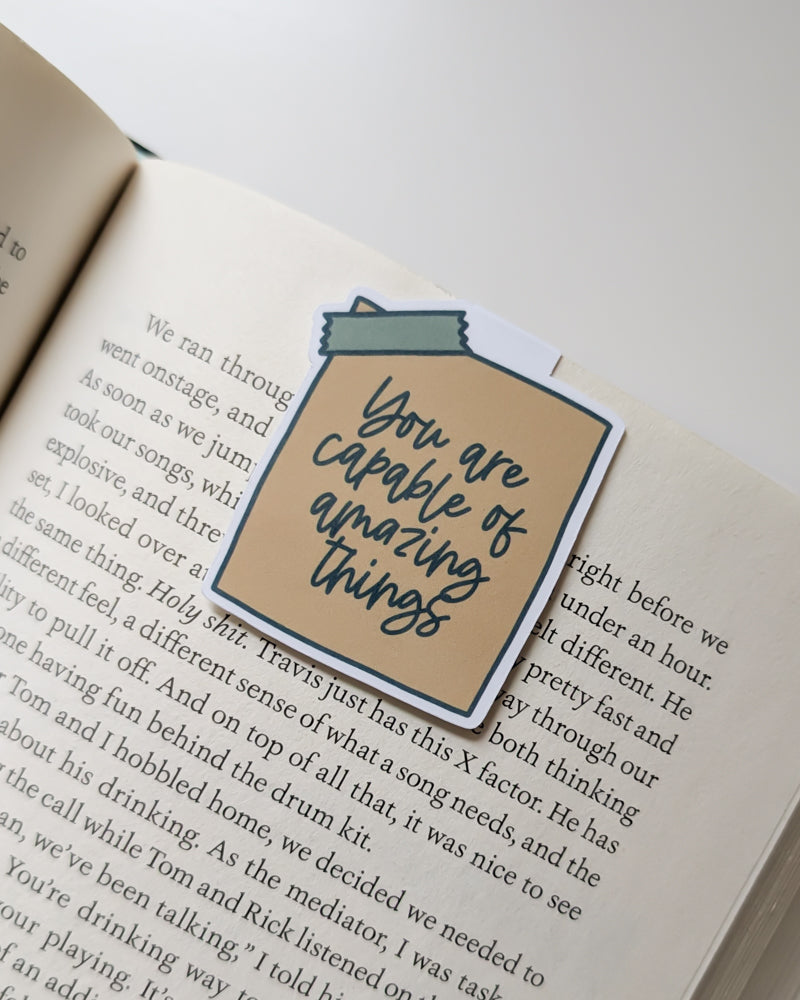 d to
be
You are
capable of
amazing
things
We ran throug right before we
went onstage, and under an hour.
As soon as we jum elt different. He
took our songs, whi y pretty fast and
explosive, and thre way through our
set, I looked over a both thinking
the same thing. Holy shit. Travis just has this X factor. He has
different feel, a different sense of what a song needs, and the
lity to pull it off. And on top of all that, it was nice to see
one having fun behind the drum kit.
r Tom and I hobbled home, we decided we needed to
about his drinking. As the mediator, I was task
the call while Tom and Rick listened on
an, we've been talking,” I told hi
You're drinking way to
your playing. It's
of an addi